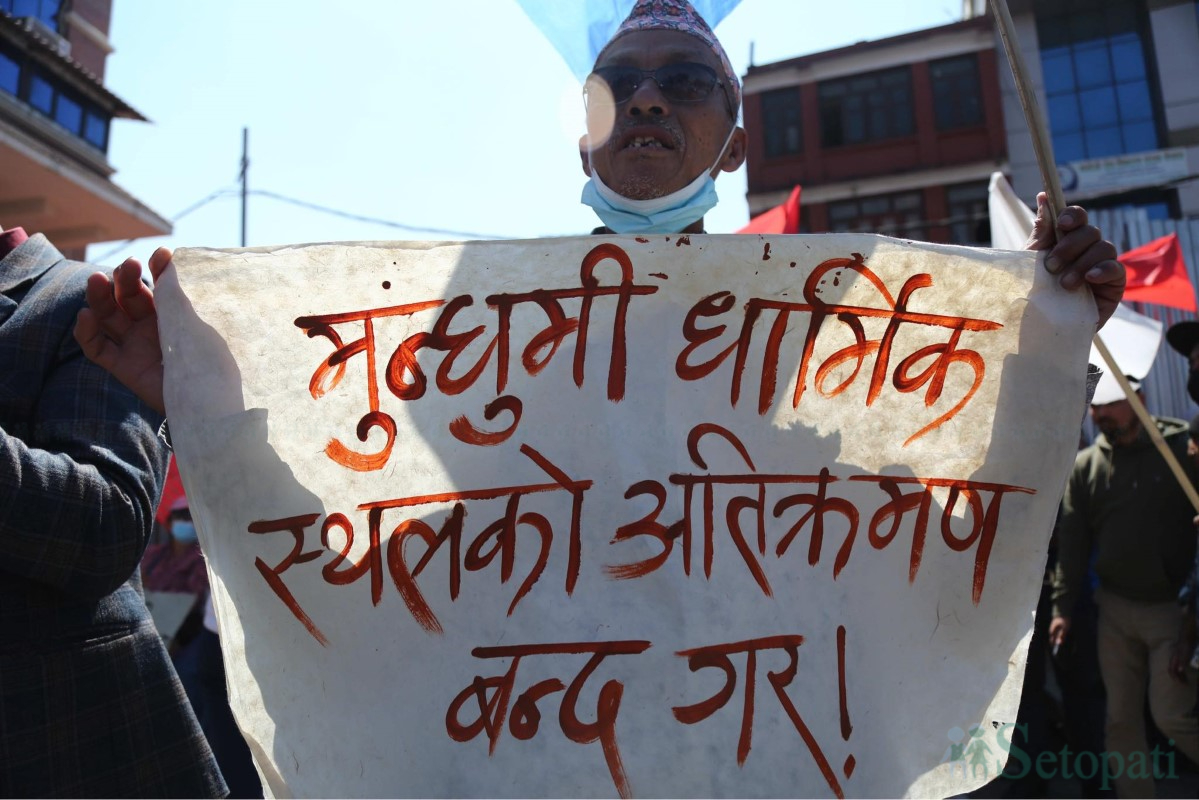 मुन्धुमी धार्मिक
स्थलको अतिक्रमण
बन्द गर!
Setopati